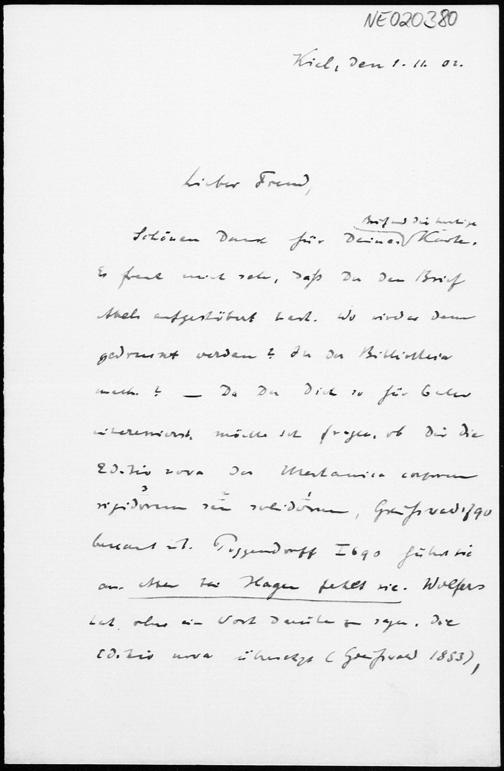 NE020380
Kiel, den 1. 11. 02.
Lieber Freund,
Brief und die heutige
Schönen Dank für Deine Karte.
Es freut mich sehr, daß Du den Brief
Abels aufgestöbert hast. Wo wird er denn
gedruckt werden? In der Bibliotheca
math.? — Da Du Dich so für Euler
interessierst, möchte ich fragen, ob Dir die
Editio nova der Mechanica corporum
rigidorum seu solidorum, Greifswald 1790
bekannt ist. Poggendorff I 690 führt sie
an. Aber bei Hagen fehlt sie. Wolfers
hat, ohne ein Wort darüber zu sagen, die
Editio nova übersetzt (Greifswald 1853),